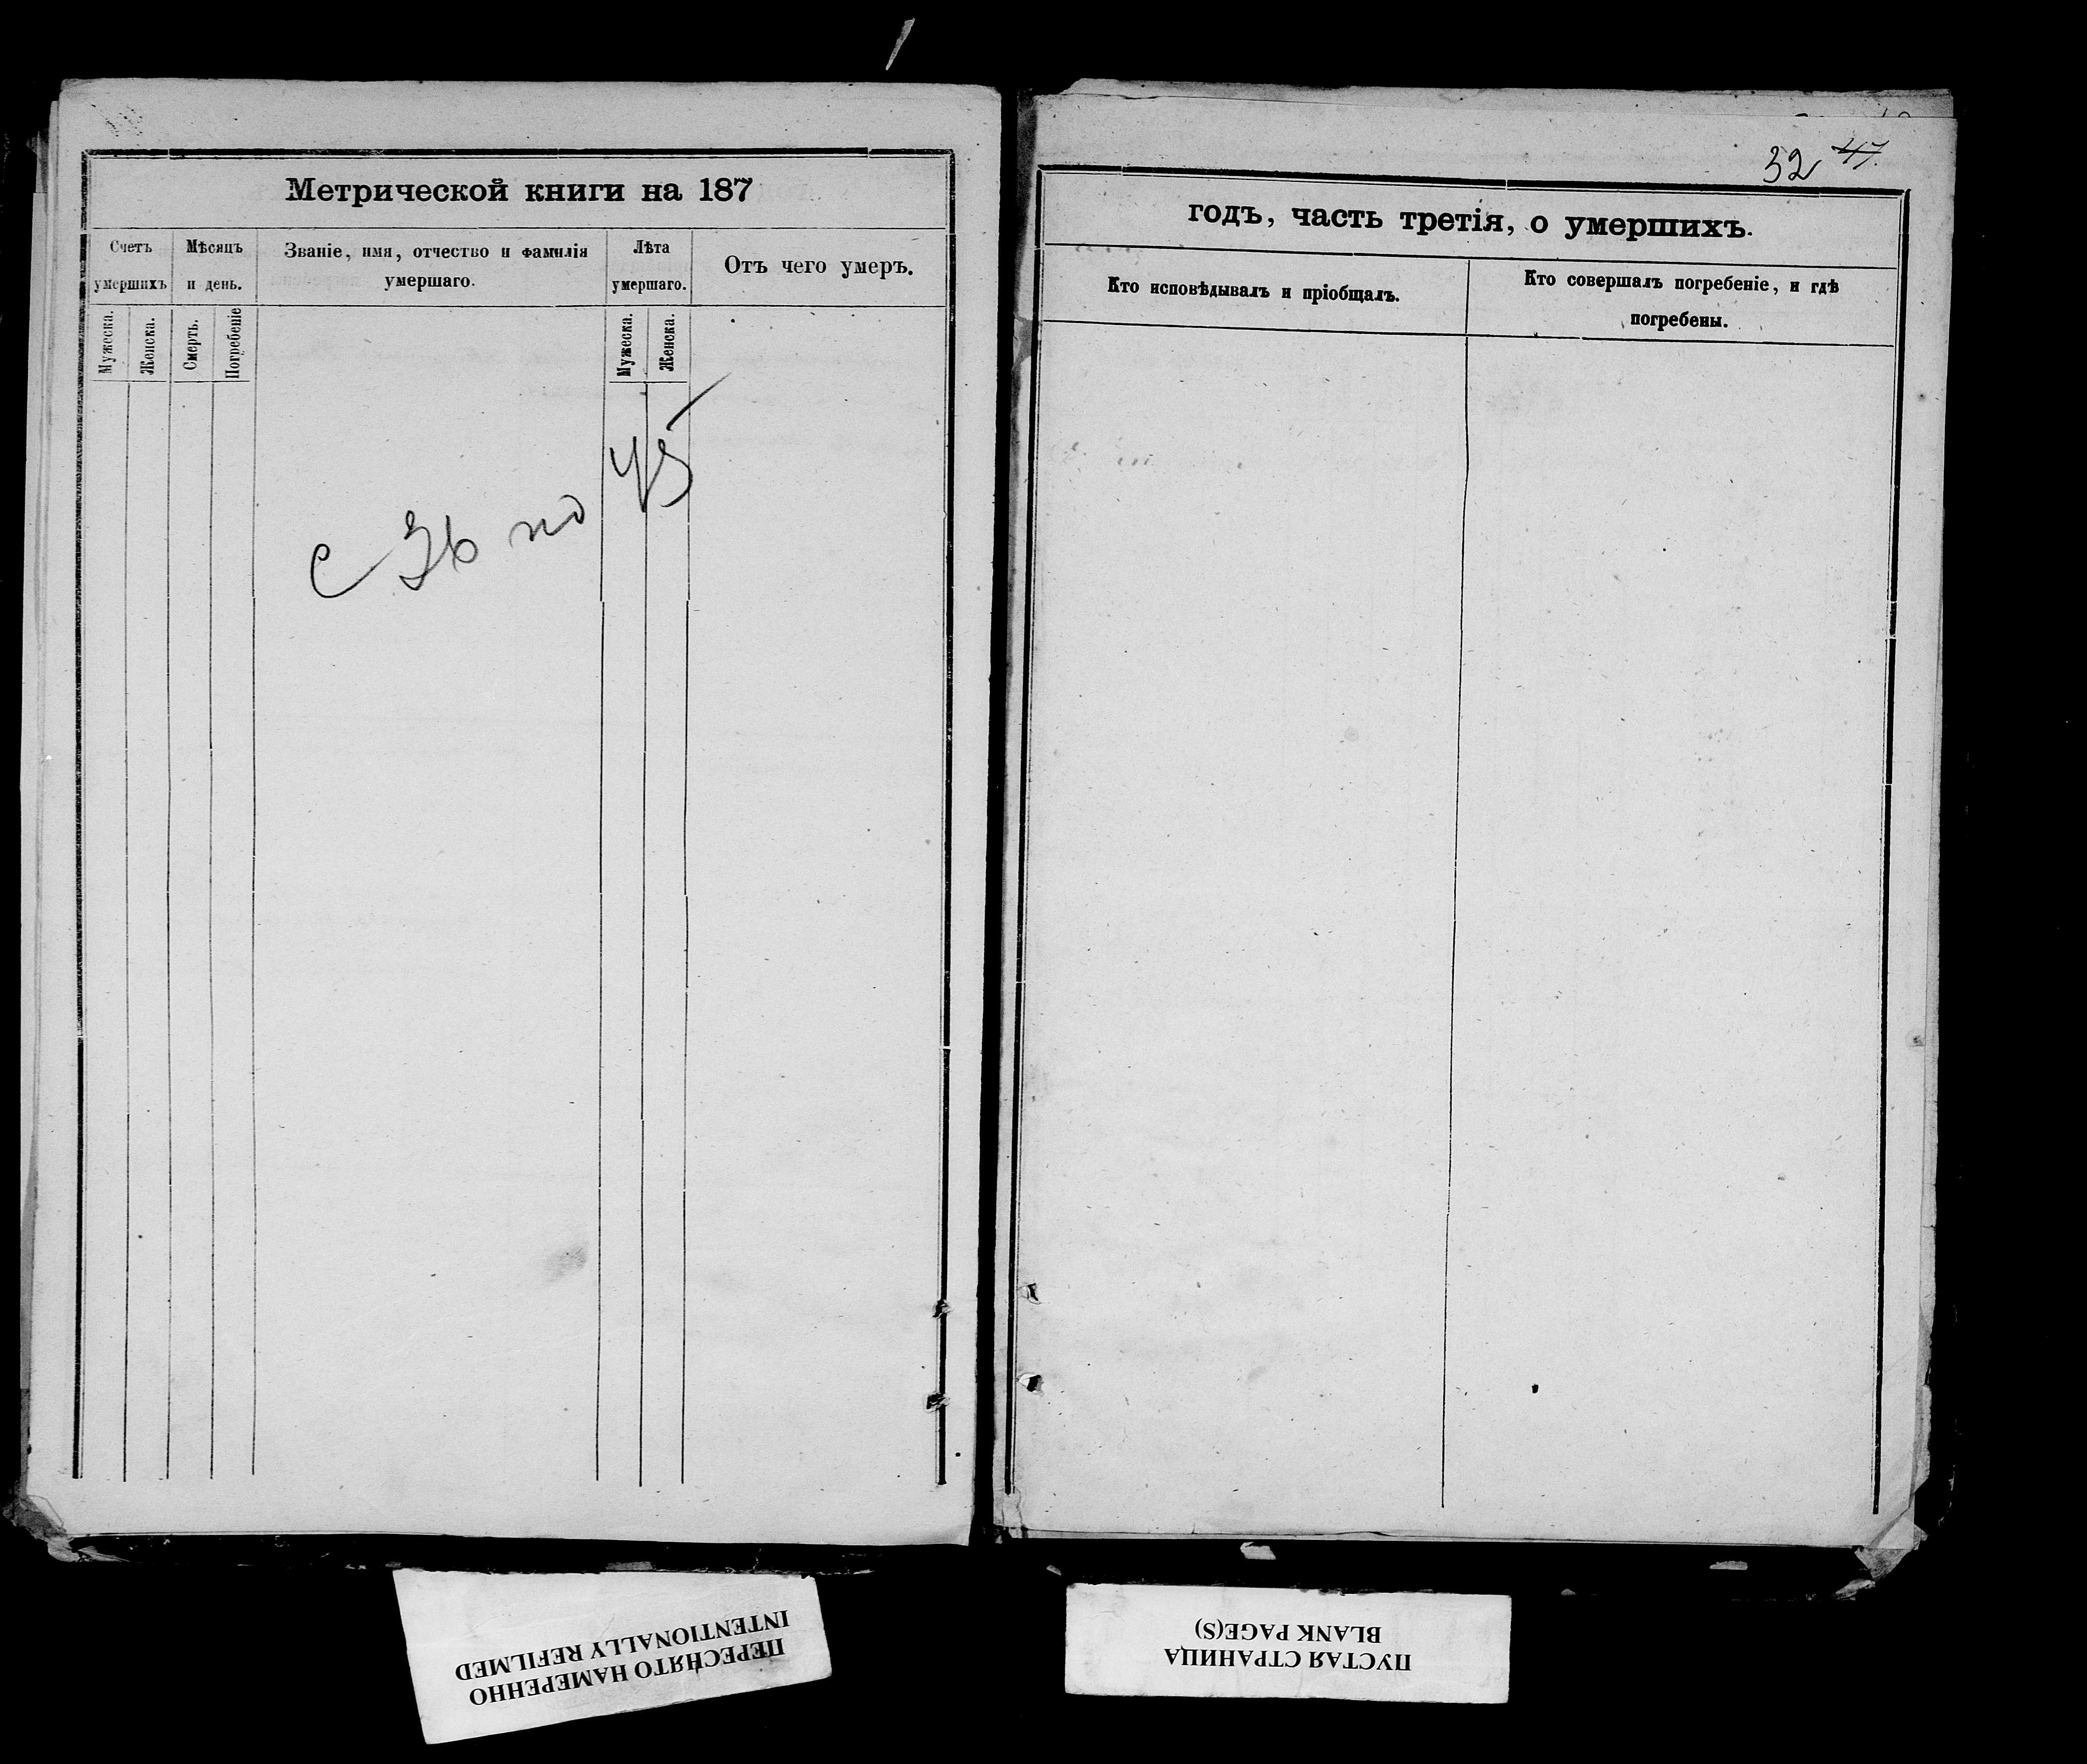 32 47.
Метрической книги на 187
Счетъ умершихъ
Мѣсяцъ и день.
Званіе, имя, отчество и фамилія
умершаго.
Лѣта
умершаго.
Отъ чего умеръ.
Мужеска.
Женска.
Смерть.
Погребеніе
Мужеска.
Женска.
с 36 по 45
годъ, часть третія, о умершихъ.
Кто исповѣдывалъ и пріобщалъ.
Кто совершалъ погребеніе, и гдѣ
погребены.
ПЕРЕСНЯТО НАМЕРЕННО
INTENTIONALLY REFILMED
ПУСТАЯ СТРАНИЦА
BLANK PAGE(S)